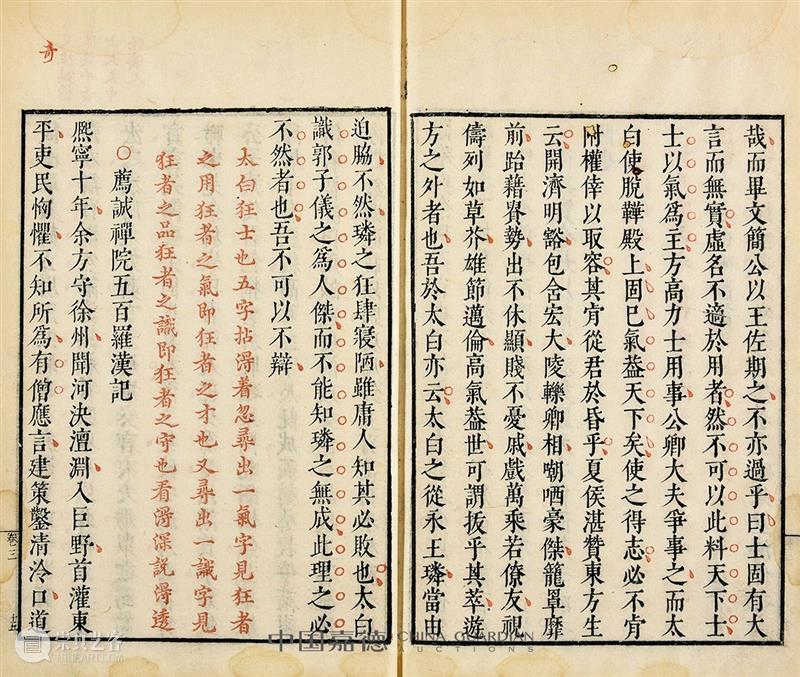 哉而畢文簡公以王佐期之不亦過乎曰士固有大
言而無實虛名不適於用者然不可以此料天下士
士以氣爲主方高力士用事公卿大夫爭事之而太
白使脫鞾殿上固已氣葢天下矣使之得志必不肯
附權倖以取容其肯從君於昏乎夏侯湛贊東方生
云開濟明豁包含宏大陵轢卿相嘲哂豪傑籠罩靡
前跆藉貴勢出不休顯賤不憂戚戲萬乘若僚友視
儔列如草芥雄節邁倫高氣葢世可謂拔乎其萃遊
方之外者也吾於太白亦云太白之從永王璘當由
迫脇不然璘之狂肆寢陋雖庸人知其必敗也太白
識郭子儀之爲人傑而不能知璘之無成此理之必
不然者也吾不可以不辯
太白狂士也五字拈淂着忽尋出一氣字見狂者
之用狂者之氣即狂者之才也又尋出一識字見
狂者之品狂者之識即狂者之守也看淂深説淂透
○薦誠禪院五百羅漢記
熈寧十年余方守徐州聞河決澶淵入巨野首灌東
平吏民恟懼不知所爲有僧應言建策鑿清泠口道
奇
卷三
中国嘉德 CHINA GUARDIAN
AUCTIONS
崇真艺客